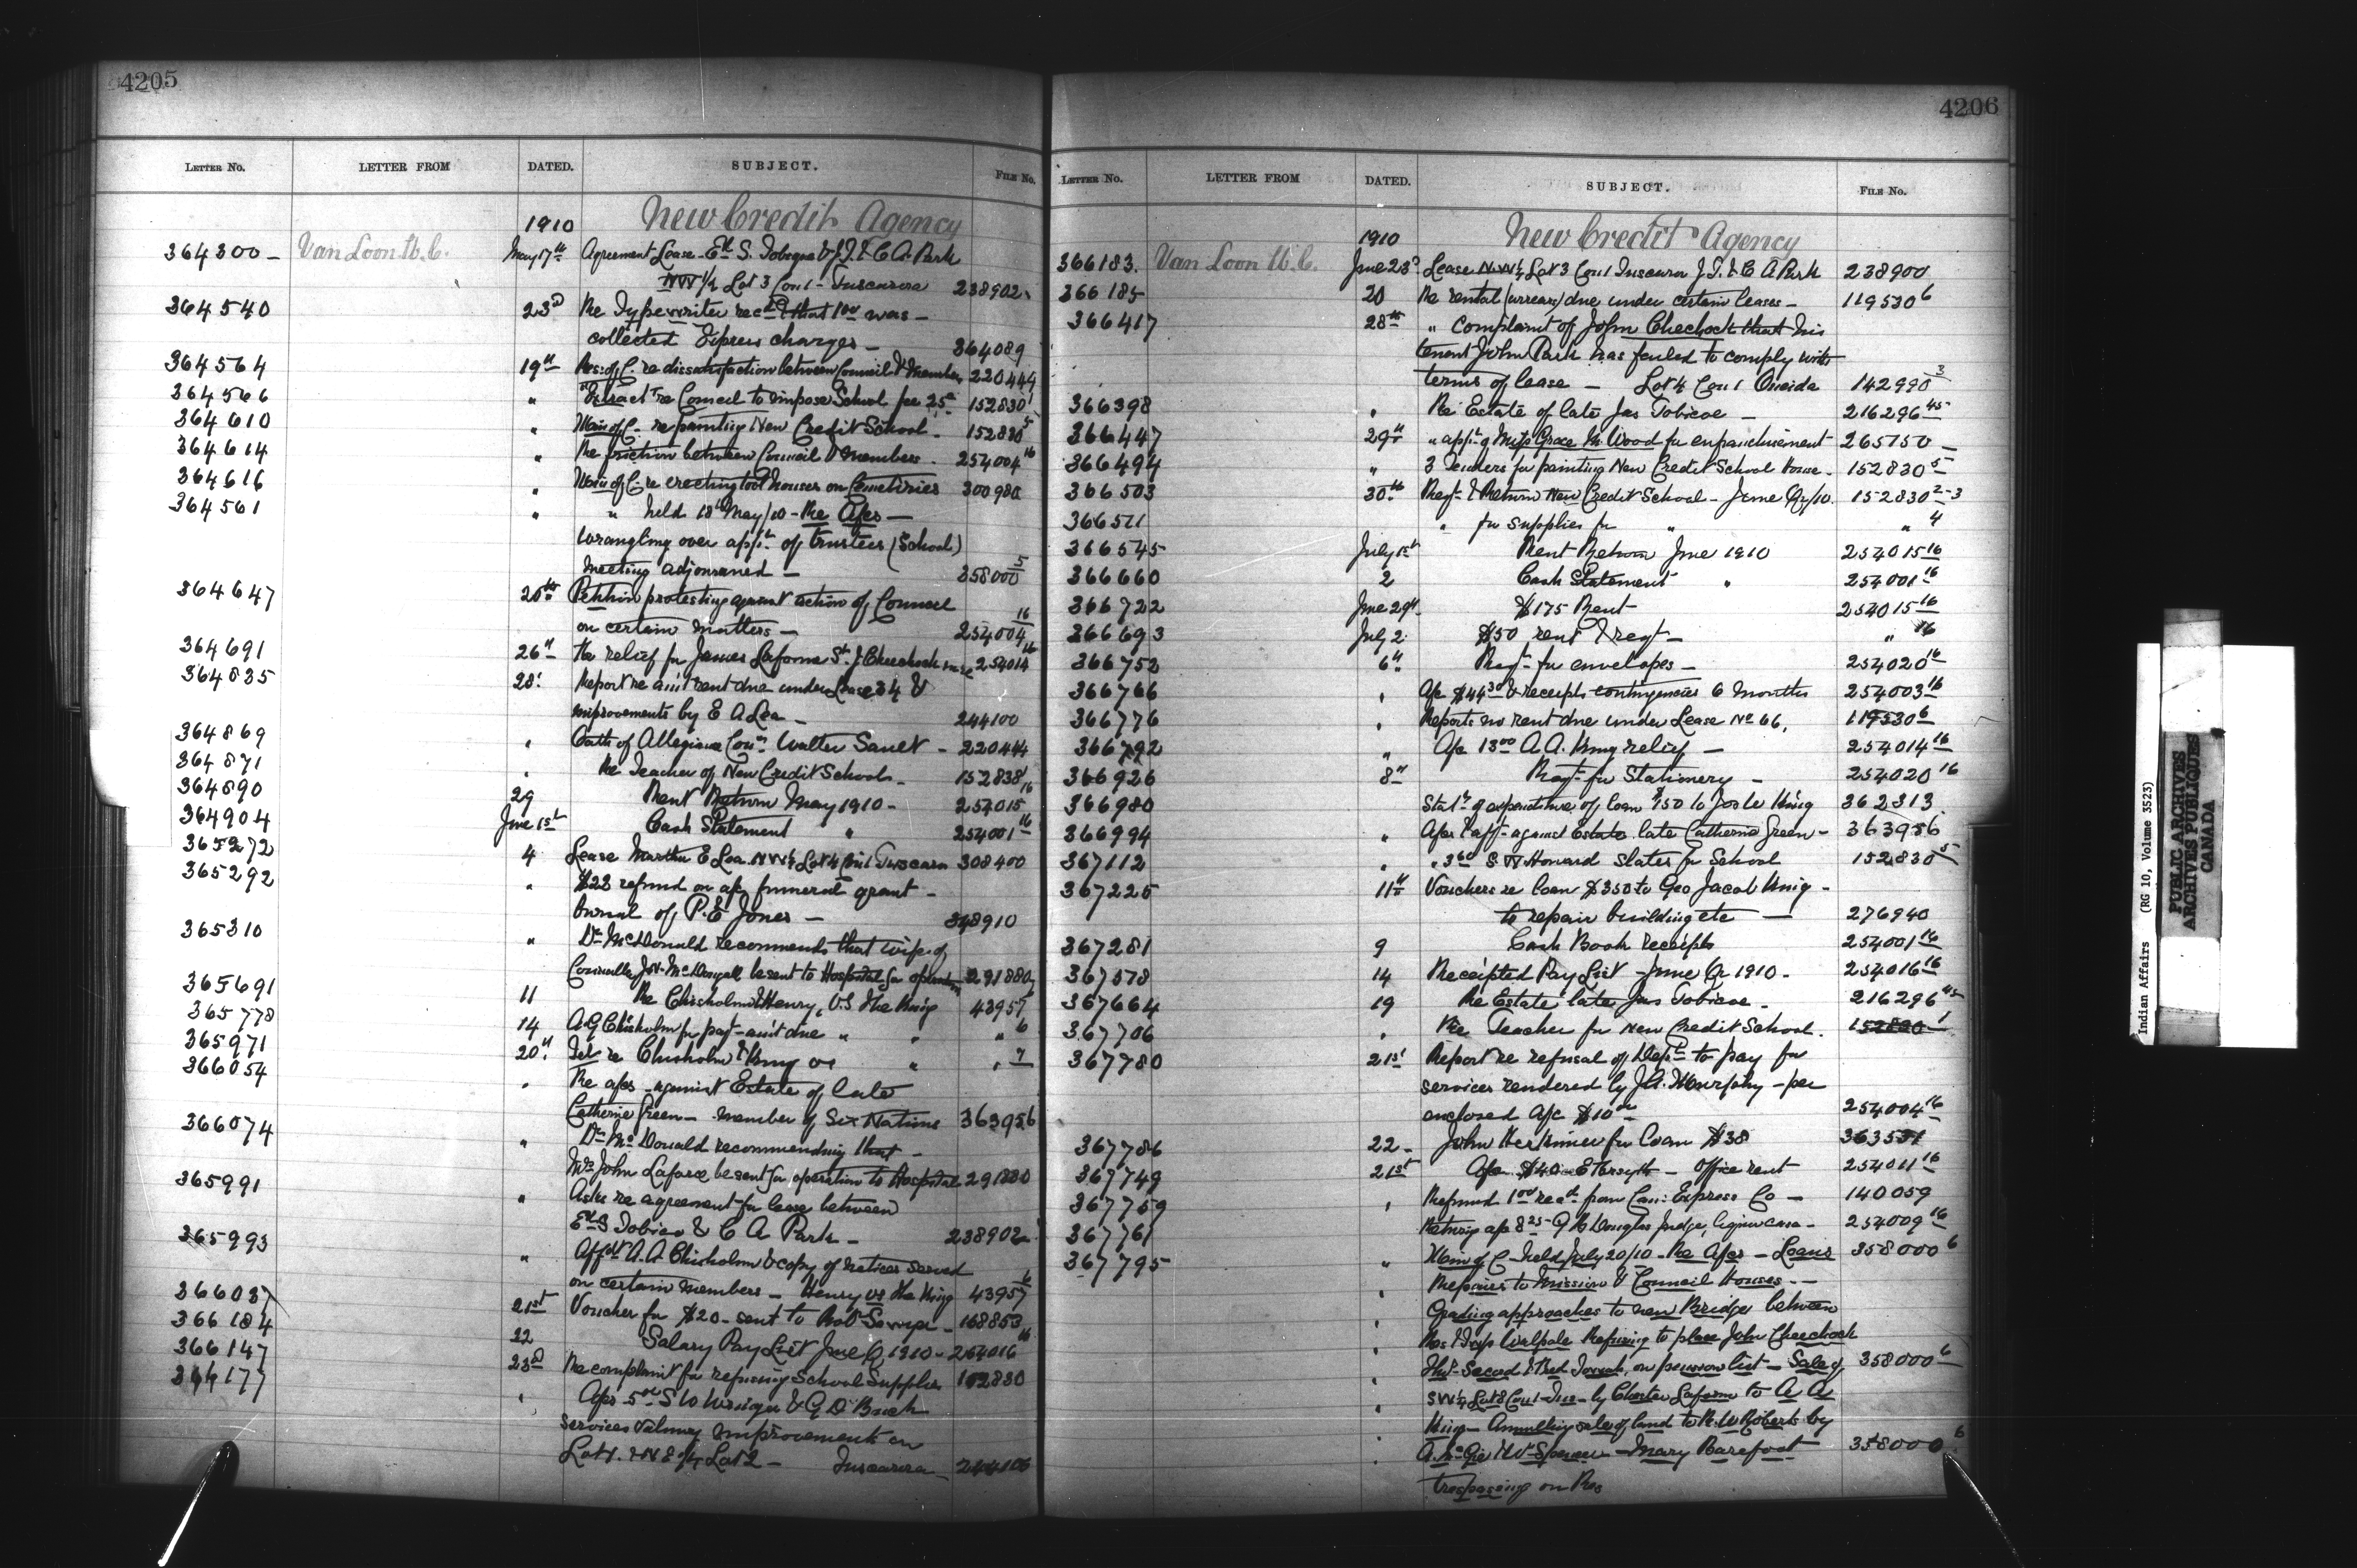 4205
LETTER NO. LETTER FROM DATED. SUBJECT. FILE NO.
1910 New Credit Agency
364300 - Van Loon W.C. May 17th Agreement Lease - Ed. S. Tobicoe & J.T. & C.A. Park
NW 1/4 Lot 3 Con 1 - Tuscarora 238902
364540 23d Re Typewriter recd & that 1.00 was -
collected Express charges - 364089
364564 19th Res: of C. re dissatisfaction between Council & Members 220449
364566 " Extract re Council to impose School fee 25c 152830 1
364610 " Min of C. re painting New Credit School - 152830 5
364614 " Re friction between Council & members - 254004 16
364616 " Min of C. re erecting tool houses on Cemeteries 300980
364561 " " held 18 May/10 - Re A/cs -
wrangling over appt. of trustees (School)
meeting adjourned - 358000 5
364647 20th Petition protesting against action of Council
on certain matters - 254004 16
364691 26th Re relief for James Laforme Sr. J. Chechock 254014 16
364835 28 Report re amt rent due under Lease 34 &
improvements by E A Lea - 244100
364869 " Oath of Allegiance Coun. Walter Sault - 220444
364871 " Re Teacher of New Credit Schools - 152838 1
364890 29 Rent Return May 1910 - 254015 16
364904 June 1st Cash Statement " 254001 16
365272 4 Lease Martha E Lea NW 1/4 Lot 4 Con 1 Tuscarora 308400
365292 " $22 refund on a/c funeral grant -
burial of P. E. Jones - 348910
365310 " Dr McDonald recommends that wife of
Councillor J.W. McDougall be sent to Hospital for operation 291880
365691 11 Re Chisholm & Henry, vs The King 43957 6
365778 14 A G Chisholm for payt - amt due " " " 6
365971 20th Tel re Chisholm & King vs " " 7
366054 " Re a/cs against Estate of late
Catherine Green - member of Six Nations 363956
366074 " Dr McDonald recommending that -
Mrs John Laforce be sent for operation to Hospital 291880
365991 " Asks re agreement for lease between
Ed S Tobico & C A Park - 238902
365993 " Affdt A. A. Chisholm & copy of notices served
on certain members - Henry vs the King 43957 6
366037 21st Voucher for $20 - sent to Robt 168853
366184 22 Salary Pay List June Qr 1910 - 254016 16
366147 23d Re complaint for refusing School Supplies 152830
366177 " A/cs 5.00 S W & G D Buck
services valuing improvements on
Lot 1. & N E 1/4 Lot 2 - Tuscarora
4206
LETTER NO. LETTER FROM DATED. SUBJECT. FILE NO.
1910 New Credit Agency
366183. Van Loon W.C. June 23d Lease NW 1/4 Lot 3 Con 1 Tuscarora J.T. & C A Park 238900
366185 20 Re rental (arrears) due under certain leases - 119530 6
366417 28th " Complaint of John Chechock that his
tenant John Park has failed to comply with
terms of lease - Lot 4 Con 1 Oneida 142990 3
366398 " Re Estate of late Jas Tobicoe - 216296 45
366447 29th " appln of Miss Grace M. Wood for enfranchisement 265750 -
366494 " 3 Tenders for painting New Credit School House - 152830 5
366503 30th Reqt & Return New Credit School - June Qr/10. 152830 2-3
366511 " for supplies for " " 4
366545 July 1st Rent Return June 1910 254015 16
366660 2 Cash Statement " 254001 16
366722 June 29th $175 Rent - 254015 16
366693 July 2 $50 rent & reqt - " 16
366752 6th Reqt for envelopes - 254020 16
366766 " A/c $44.30 & receipts contingencies 6 months 254003 16
366776 " Reports no rent due under Lease No 66, 119530 6
366792 " A/c 13.00 A. A. King relief - 254014 16
366926 8th Reqt for Stationery - 254020 16
366980 Statt of expenditure of loan $150 to King 362313
366994 " A/cs & afft against Estate late Catherine Green - 363956
367112 " " 3.60 S W Howard slates for School 152830 5
367225 11th Vouchers re loan $350 to Geo Jacob King -
to repair building etc - 276940
367281 9 Cash Book receipts 254001 16
367578 14 Receipted Pay List - June Qr 1910 - 254016 16
367664 19 Re Estate late Jas Tobicoe - 216296 45
367706 " Re Teacher for New Credit School. 152830 1
367780 21st Report re refusal of Dept to pay for
services rendered by J.A. Murphy - per
enclosed A/c $10.00 254004 16
367786 22 - John Herkimer for loan $38 363531
367749 21st A/c $40 - E Forsyth - Office rent 254011 16
367759 " Refund 1.00 recd from Can: Express Co - 140059
367761 Returning a/c 8.25 - G Douglas Judge, liquor case - 254009 16
367795 " Min of C held July 20/10 - Re A/cs - Loans 358000 6
" Repairs to Mission & Council Houses -
" Grading approaches to new Bridge between
" Res & Twp Walpole Refusing to place John Chechock
on pension list - Sale of 358000 6
" SW 1/4 Lot 8 Con 1 - Tus - by Charles Laform to A A
King - Annulling sale of land to R. W Roberts by
" Mary Barefoot 358000 6
" trespassing on Res
Indian Affairs (RG 10, Volume 3523)
PUBLIC ARCHIVES
ARCHIVES PUBLIQUES
CANADA